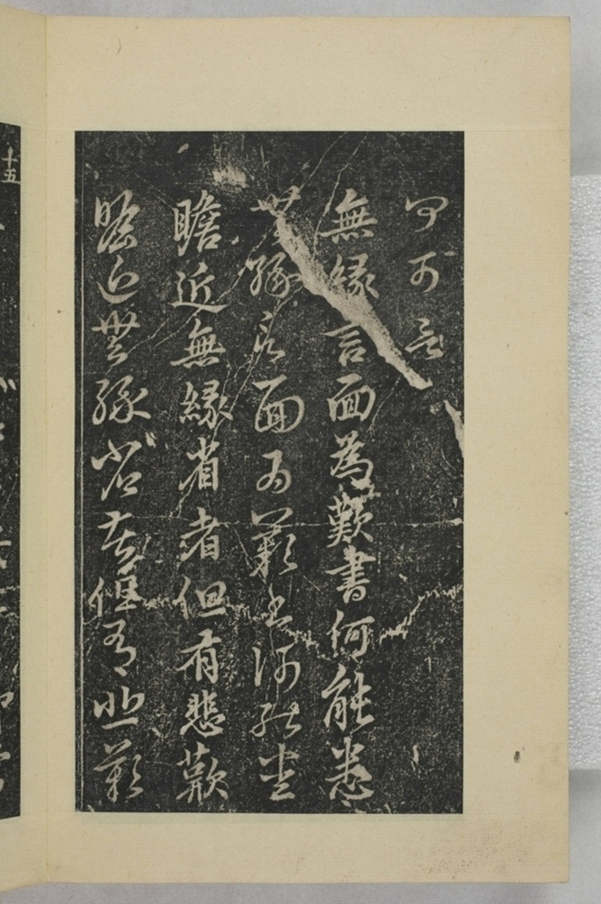 可言
無緣言面為歎書何能悉
無緣言面為歎書何能悉
瞻近無緣省者但有悲歎
瞻近無緣省苦但有悲歎
十五